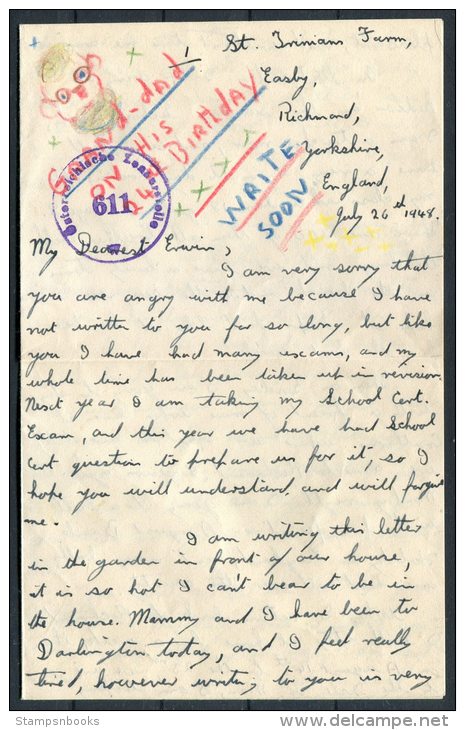 1
St. Trinians Farm,
Easby,
Richmond,
Yorkshire,
England,
July 26th 1948.
Grand-dad
ON HIS
Birthday
WRITE
SOON
Österreichische Zensurstelle
611
My Dearest Erwin,
I am very sorry that
you are angry with me because I have
not written to you for so long, but like
you I have had many exams, and my
whole time has been taken up in revision.
Next year I am taking my School Cert.
Exam, and this year we have had School
Cert question to prepare us for it, so I
hope you will understand and will forgive
me.
I am writing this letter
in the garden in front of our house,
it is so hot I can't bear to be in
the house. Mammy and I have been to
Darlington today, and I feel really
tired, however writing to you is very
Stampsnbooks
delcampe.net